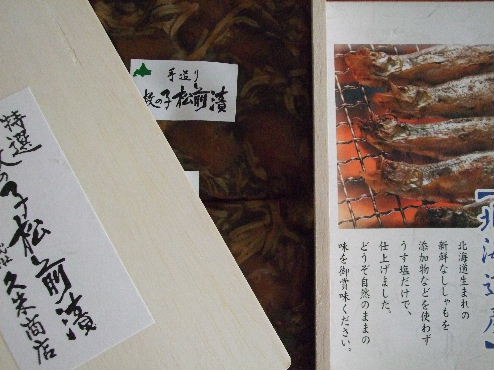 手造り
数の子松前漬
特選
数の子松前漬
久米商店
【北海道産】
北海道生まれの
新鮮なししゃもを
添加物などを使わず
うす塩だけで、
仕上げました。
どうぞ自然のままの
味を御賞味ください。